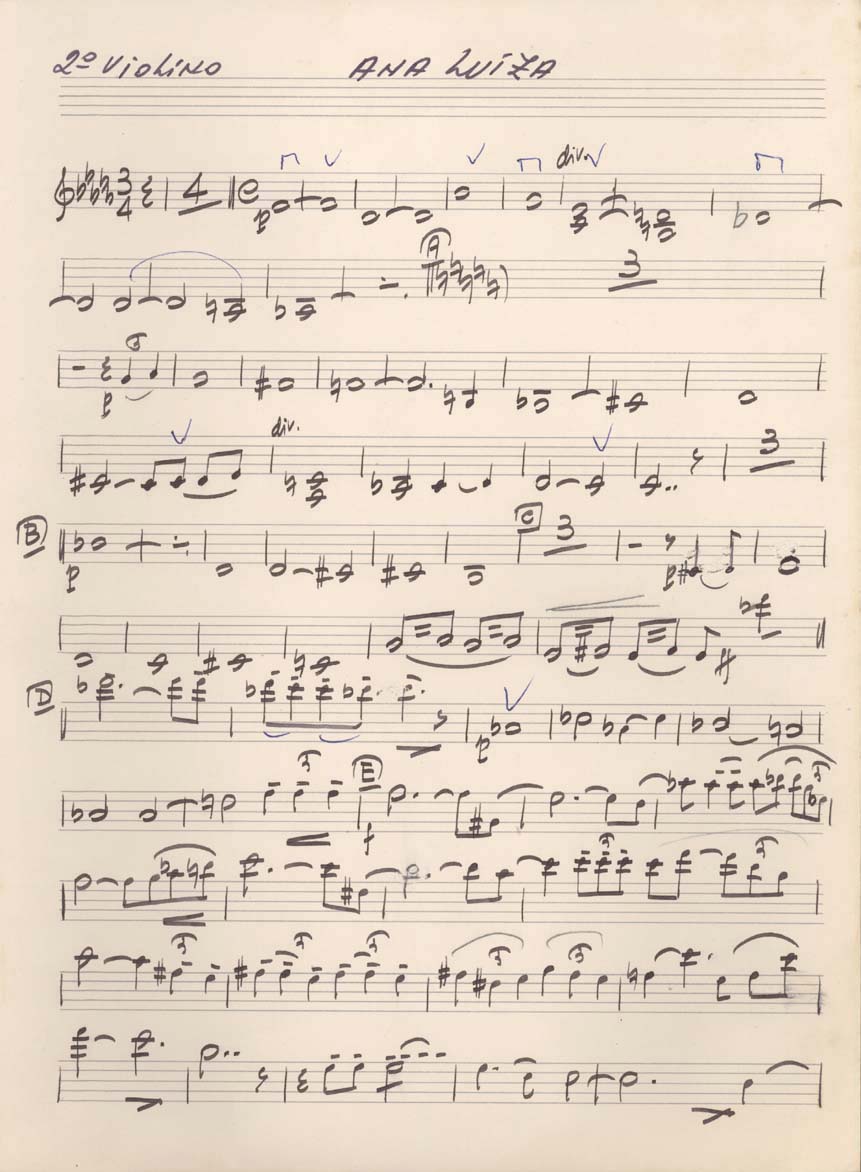 2º Violino ANA LUÍZA
3 4 4 p div.
A 3
p
div. 3
B p C 3 p
D p
3 E 3 f
3 3 3
3 3 3 3 3